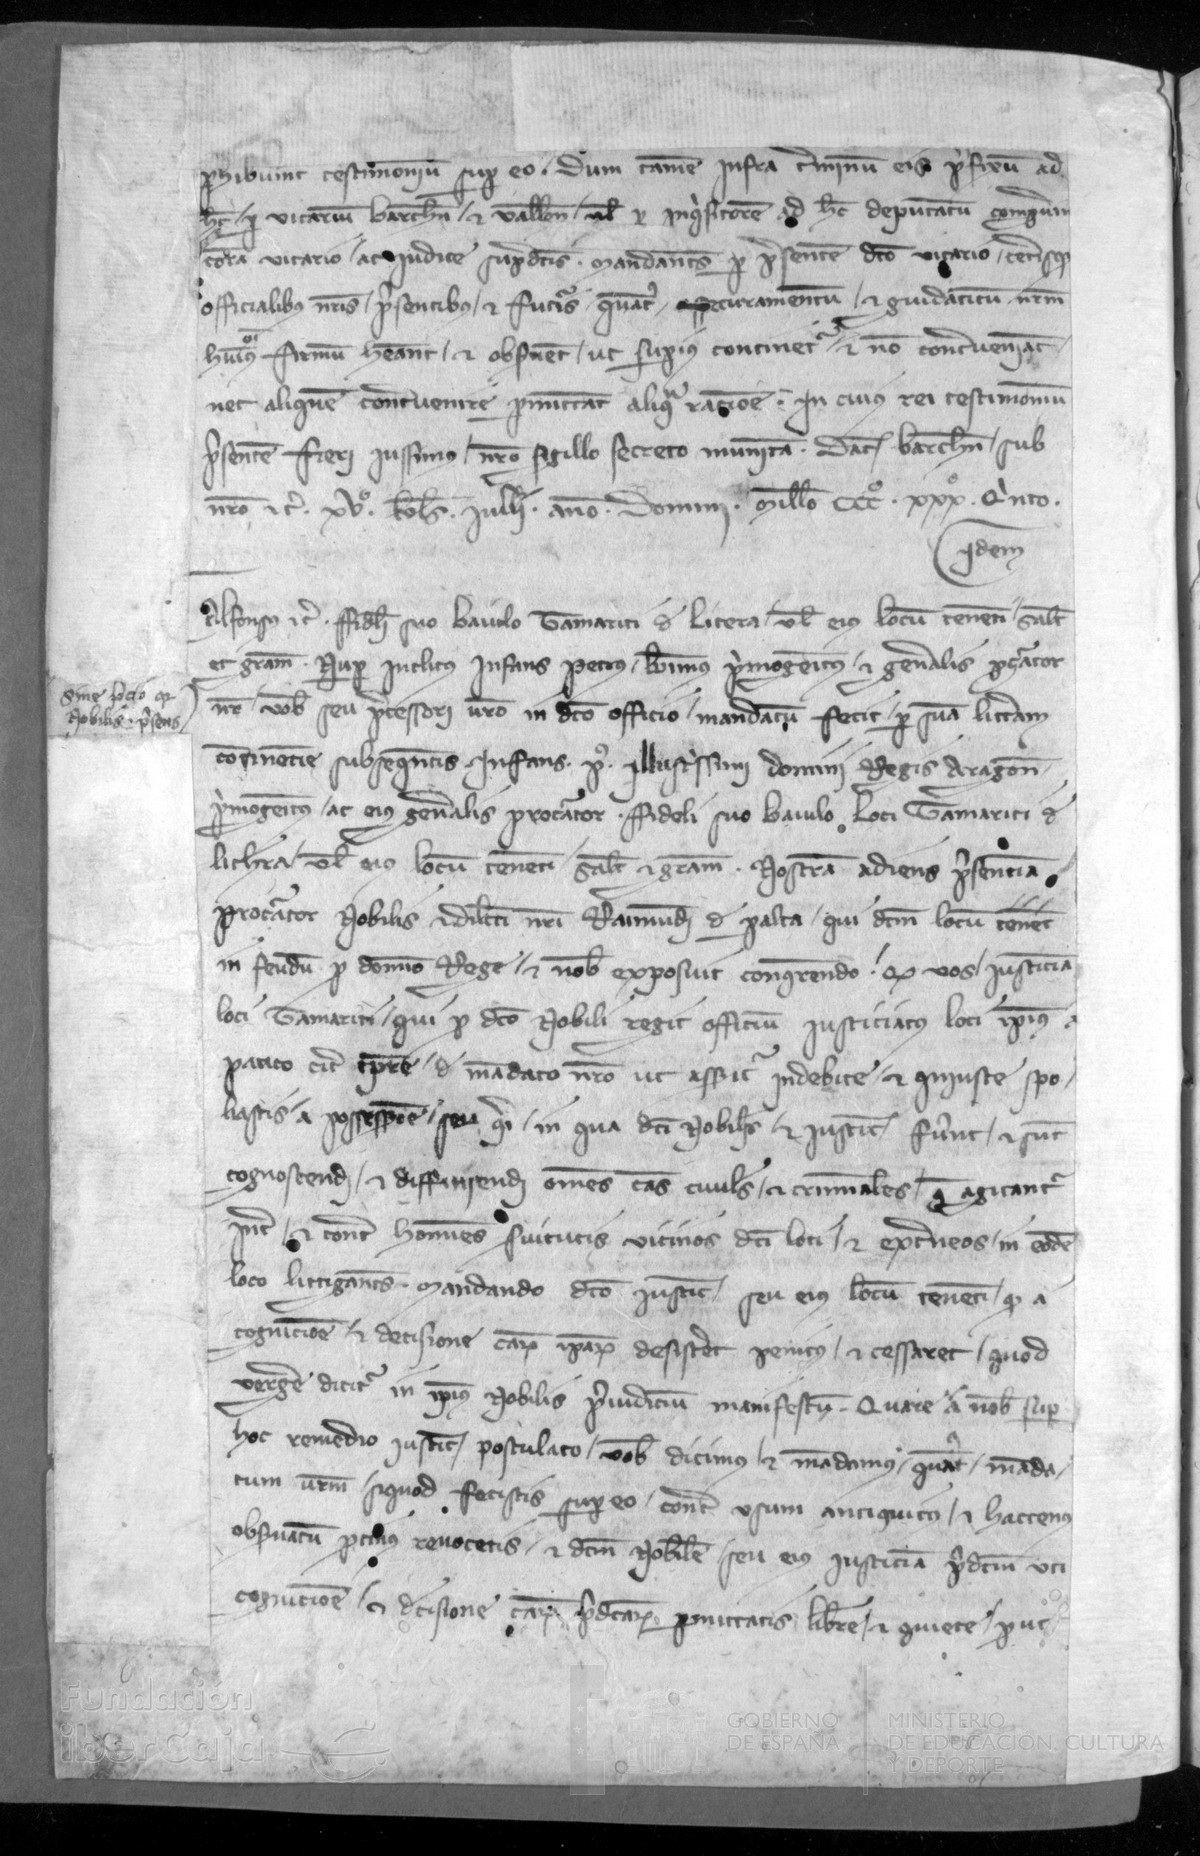 phibuint testimoniū sup eo. Dum tamē infra t'minū eis p'fixū ad
hc / p vicariū barchn / & vallen / vl' p inq'sitorē ad hc deputatū
cora vicario / ac iudice sup'dctis. mandantes p p'sentē dco vicario / cetisqȝ
officialibȝ nris / p'sentibȝ / & futis / quat' securamentū / & guidaticū nrm
huiȝ firmū heant / & obsuent / ut supiȝ continet' & nō cont'ueniāt
nec aliquē cont'uenire pmittāt aliqa ratione. In cuiȝ rei testimoniū
p'sentē fieri iussimȝ / nro sigillo secreto munita. Dat barchn / sub
nro &c'. xvº. kls. Julii. ano. Domini. Millo CCCº. xxxº. Q'nto.
Idem
Alfonsȝ &c'. ffideli suo baiulo Tamariti d' Litera / vl' eiȝ locū tenēti / salt
et gram. Nup inclitȝ Infans Petrȝ / p'mogēitȝ / & gen'alis pcator
Sine p'cio qr
Nobilis p'sens
nr / vob seu p'cessori vro in dco officio / mandatū fecit / p sua litt'am
continētie subseqntis. Infans. P'. illustrissimi domini Regis Aragon
p'mogēitȝ / ac eiȝ gen'alis procator. ffideli suo baiulo Loci Tamariti d'
lithera / vl' eiȝ locū tenēti / salt & gram. Nostrā adiens p'sentiā
procator Nobilis & dilcti nri Raimundi d' palta / qui dcm locū tenet
in feudū p domno Rege / & nob exposuit conqrendo / qȝ vos / iusticiā
loci Tamariti / qui p dco Nobili regit officiū iusticiatȝ loci ipiȝ a
pauco cit' tpre / d' mādato nro ut asserit' indebite / & iniuste spo/
liastis a possessiōe / seu / in qua dci Nobilis / & iustic / fūnt / & sūt
cognoscendi / & diffiniendi omes cās ciuiles / & criminales / q agitant'
int' / & cont' homines siuitutis vicinos dci loci / & ext'neos / in eodē
loco littigantes. mandando dco iustic / seu eiȝ locū tenēti / qȝ a
cognitiōe / & decisione carȝ ipaȝ desistet penitȝ / & cessaret / quod
verge dicit' in ipiȝ Nobilis p'iudiciū manifestū. Quare a nob sup
hoc remedio iustic / postulato / vob dicimȝ / & mādamȝ / quat' / māda/
tum vrm / siquod fecistis sup eo / cont' usum antiquitȝ / & hactenȝ
obsuatū revocetis / & dcm Nobile / seu eiȝ iusticiā p'dcm uti
cognitiōe / & decisione carȝ p'dcaȝ pmittatis libere / & quiete / put
Fundación
iberCaja
GOBIERNO
DE ESPAÑA
MINISTERIO
DE EDUCACIÓN, CULTURA
Y DEPORTE